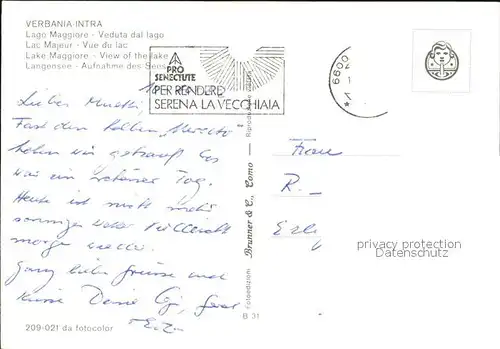 VERBANIA-INTRA
Lago Maggiore - Veduta dal lago
Lac Majeur - Vue du lac
Lake Maggiore - View of the lake
Langensee - Aufnahme des Sees
PRO
SENECTUTE
PER RENDERE
SERENA LA VECCHIAIA
6600
Liebe
Fast den halben
haben wir
war ein schöner Tag.
Heute ist nicht mehr
sonniges Wetter vielleicht
morge wieder.
Ganz liebe Grüsse und
Küsse Deine
Frau
R.
privacy protection
Datenschutz
Fotoedizioni Brunner & C., Como — Riproduzione vietata
B 31
209-021 da fotocolor